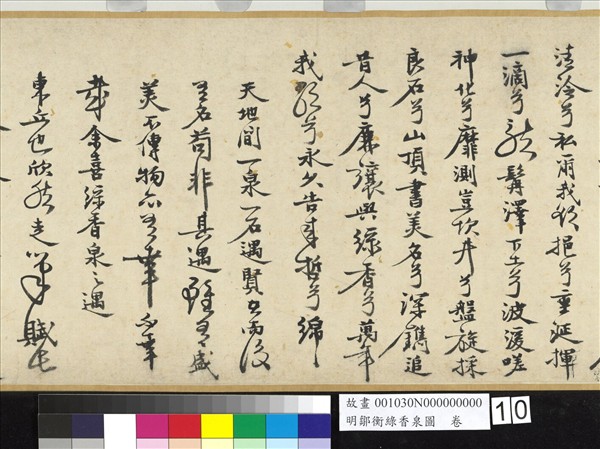 清泠兮私爾我欲挹兮重涎揮
一滴兮龍髯澤下土兮波湲嗟
神化兮靡測豈坎井兮盤旋採
良石兮山頂書美名兮深鐫追
昔人兮廉讓與綠香兮萬年
我歌兮永久告來哲兮綿〻
天地間一泉一石遇賢者而後
著名苟非其遇雖有盛
美不傳物亦有幸不幸
哉余喜綠香泉之遇
東丘也欣然走筆賦長
故畫 001030N000000000
明鄒衡綠香泉圖 卷
10